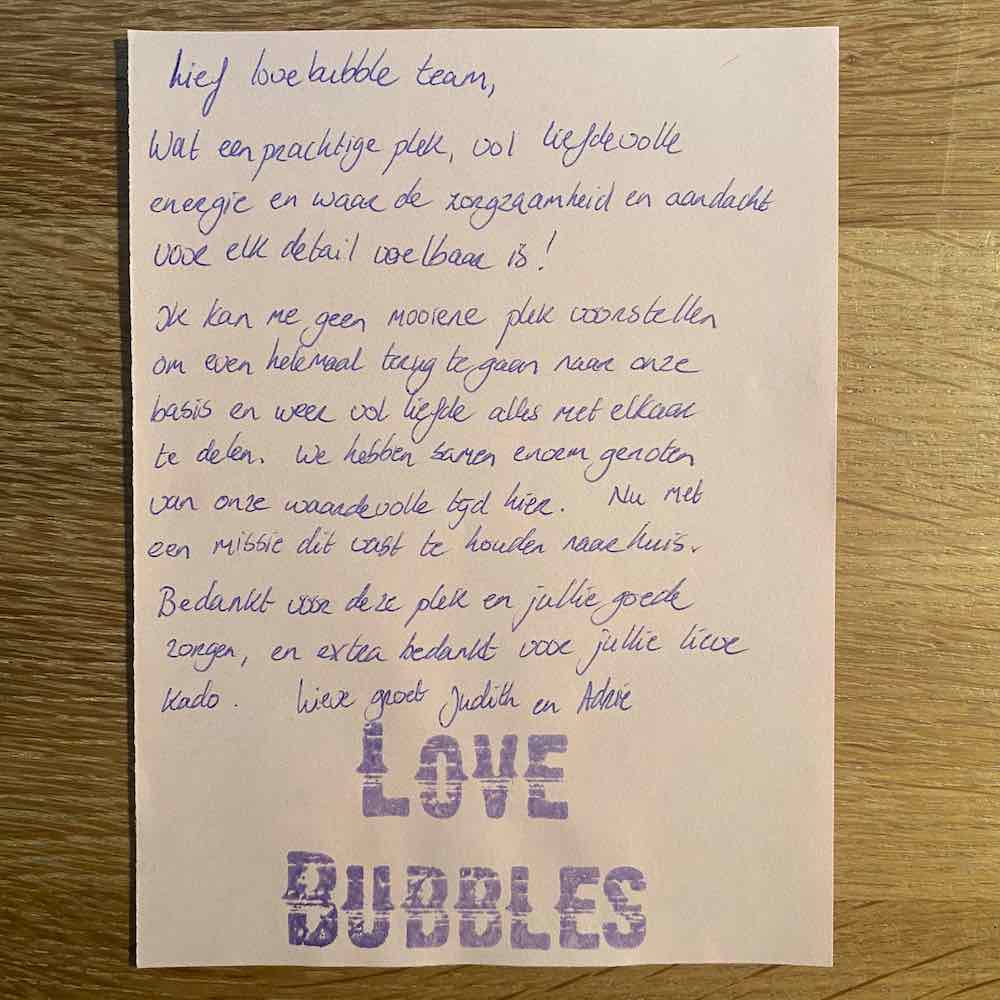 Lief lovebubble team,
Wat een prachtige plek, vol liefdevolle
energie en waar de zorgzaamheid en aandacht
voor elk detail voelbaar is!
Ik kan me geen mooiere plek voorstellen
om even helemaal terug te gaan naar onze
basis en weer vol liefde alles met elkaar
te delen. We hebben samen enorm genoten
van onze waardevolle tijd hier. Nu met
een missie dit vast te houden naar huis.
Bedankt voor deze plek en jullie goede
zorgen, en extra bedankt voor jullie lieve
kado. Lieve groet Judith en Adrie
LOVE
BUBBLES